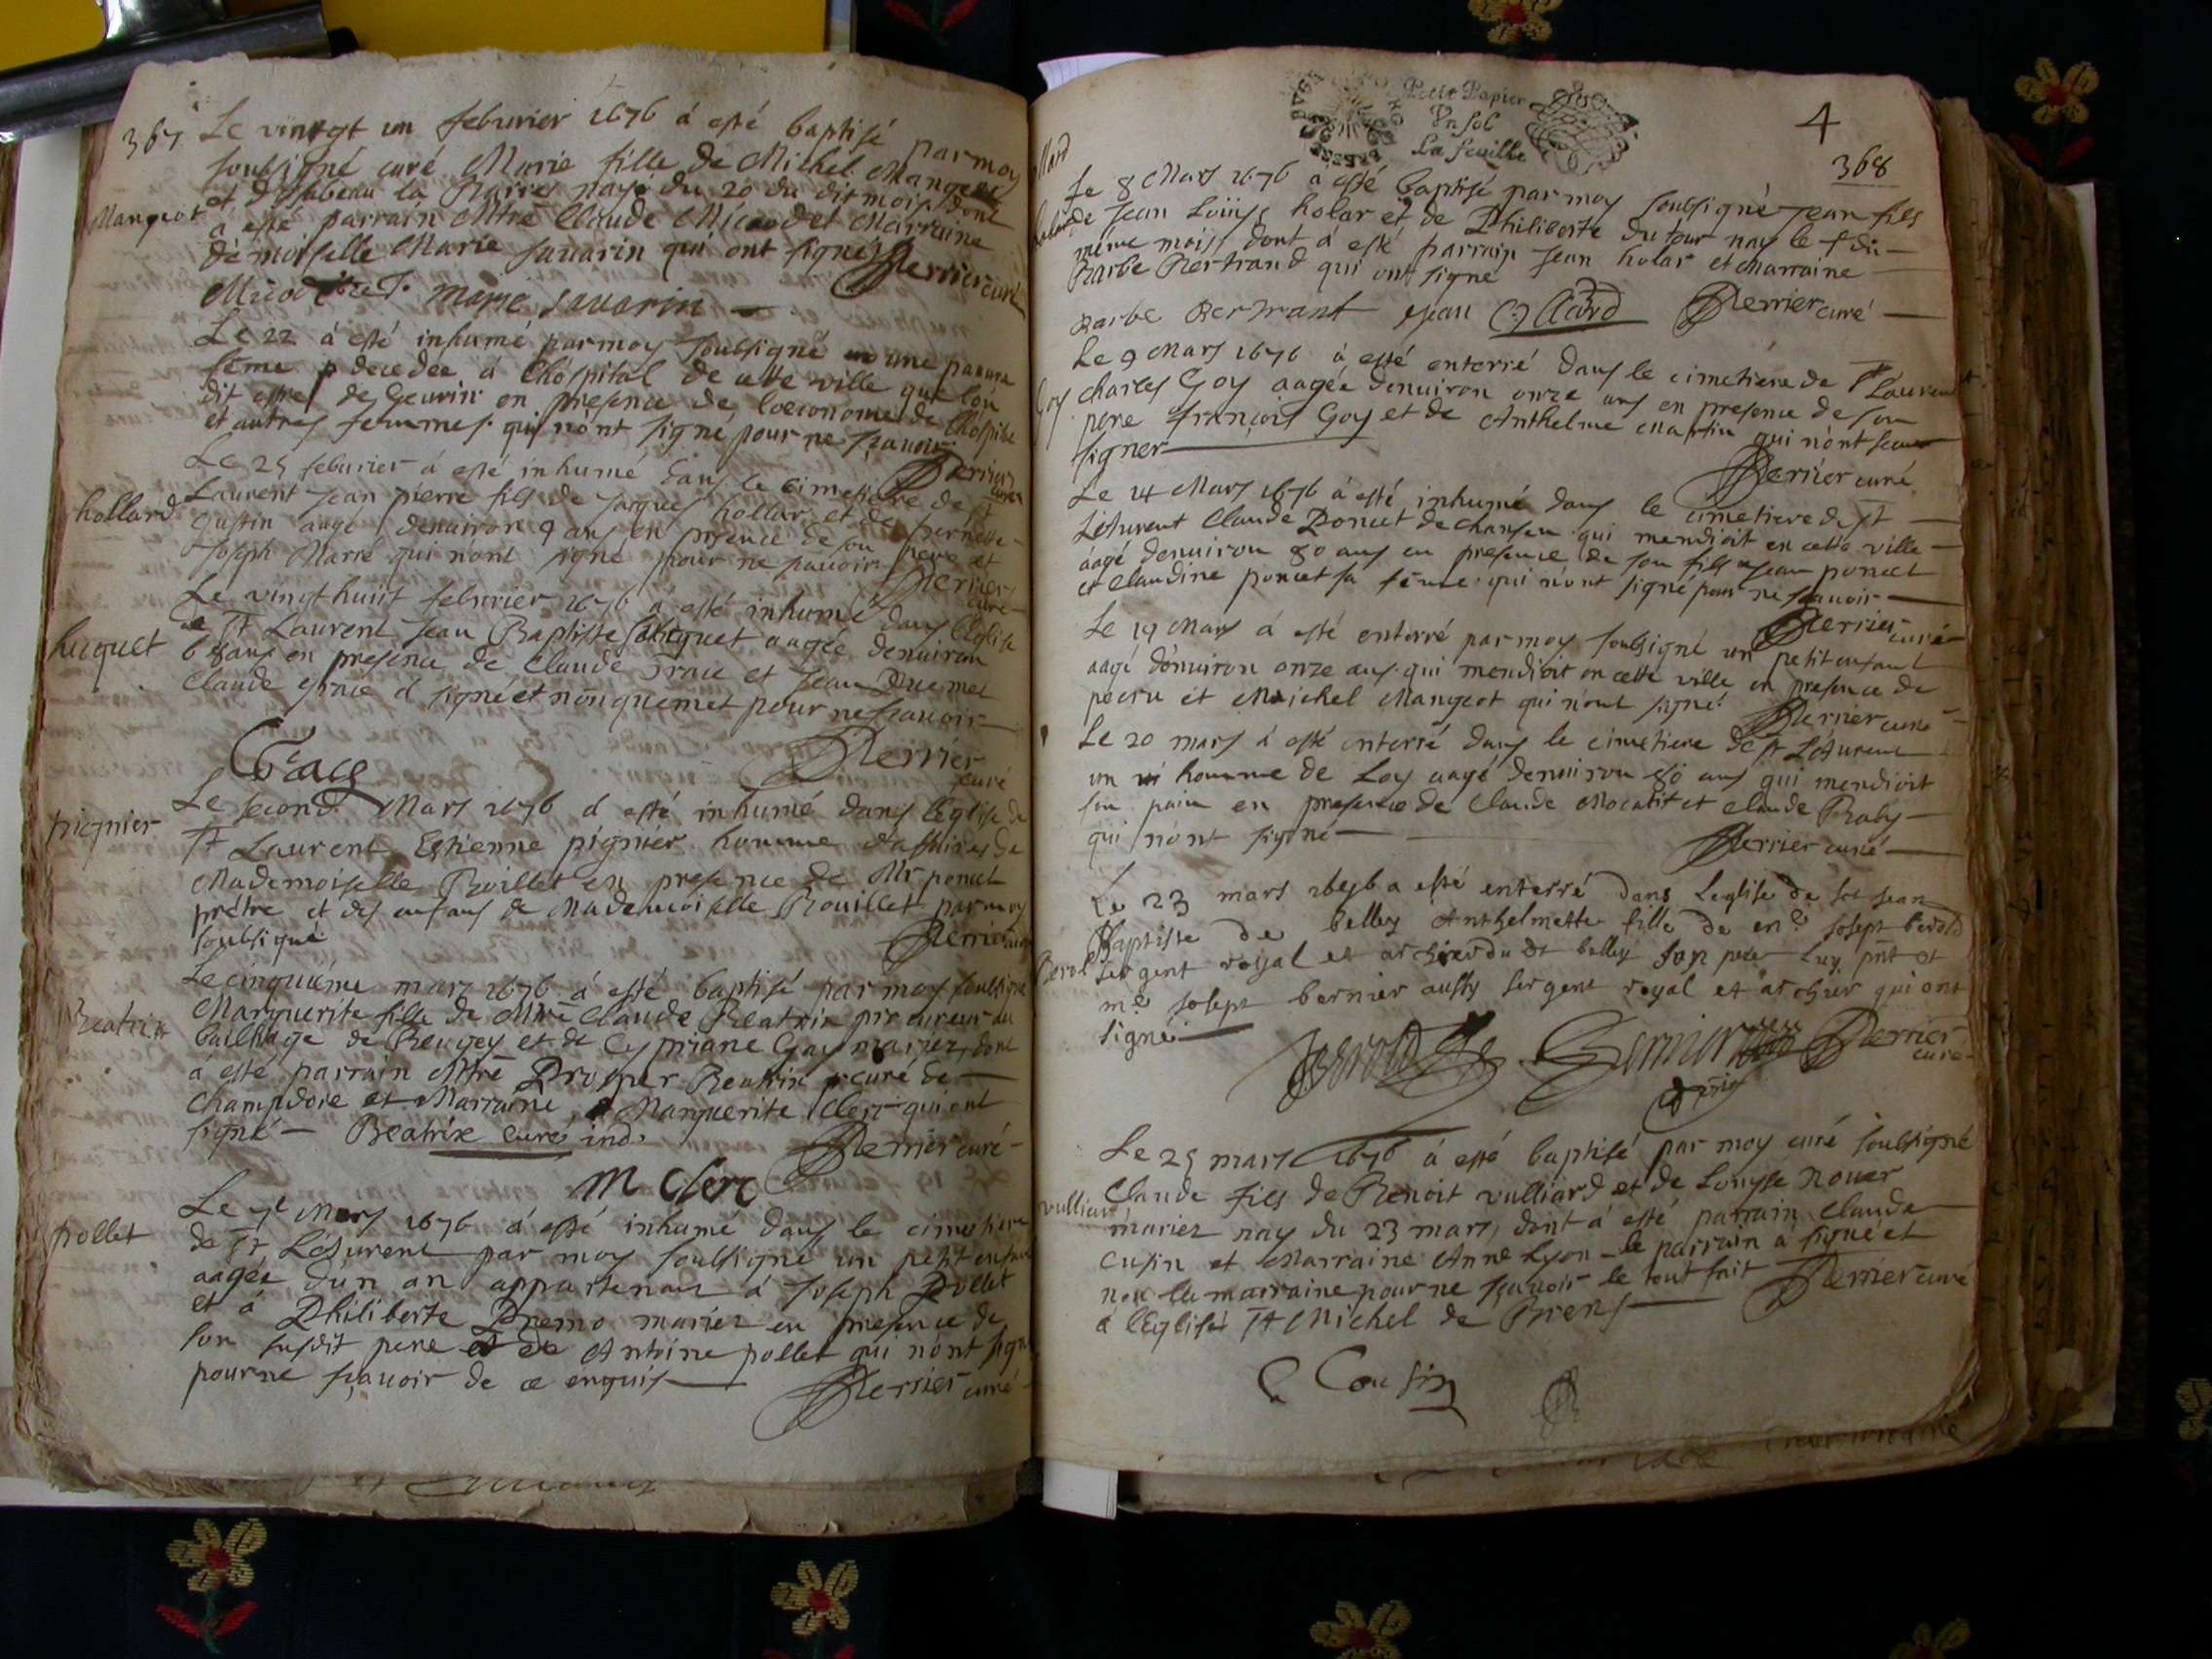 367
Le vinegt un feburier 1676 á esté baptisé par moy
soubsigné curé Marie fille de Michel Mangeot
et d'Isabeau la Barre nayé du 20 du dit mois dont
Mangeot
a esté parrain Mtre Claude Micod et Marraine
démoiselle Marie Sauarin qui ont signés Perrier curé
Marie Sauarin
Le 22 á esté inhumé par moy soubsigné une pauure
féme decedée á lhôspital de cette ville que lon
dit estre de en presence de l'oeconome de lhospital
et autres femmes qui n'ont signé pour ne sçauoir
Perrier curé
Le 25 feburier á esté inhumé dans le cimetiere de St
hollard
Laurent Jean pierre fils de Jacques hollar et de pernette
Gustin aagé denuiron 9 ans en presence de son pere et
Joseph Marré qui nont signé pour ne sauoir
Perrier curé
Le vingthuit feburier 1676 á esté inhumé dans l'Eglise
huguet
de St Laurent Jean Baptiste huguet aagée denuiron
ans en presence de Claude Grace et Jean
Claude grace á signé et non quemet pour ne scauoir
Perrier curé
Grace
Le second Mars 1676 á esté inhumé dans l'Eglise de
pignier
St Laurent Estienne pigniér homme d'affaires de
Mademoiselle Rouillet en presence de Mr poncet
prétre et des enfans de Mademoiselle Rouillet par moy
soubsigné
Perrier curé
Le cinquiéme mars 1676 á esté baptisé par moy soubsigné
Beatrix
Marguerite fille de Mtre Claude Beatrix procureur au
bailliage de Beugey et de Cypriane Gay mariez, dont
á esté parrain Mtre Prosper Beatrix curé de
Champdore et Marraine Marguerite Clerc qui ont
signé — Beatrix curé ind. Perrier curé
M Clerc
Le 7e Mars 1676 á esté inhumé dans le cimetiere
pollet
de St Léaurent par moy soubsigné un petit enfant
aagée d'un an appartenant á Joseph Pollet
et á Philiberte Premo mariez en presence de
son susdit pere et de Antoine pollet qui n'ont signé
pour ne sçauoir de ce enquis Perrier curé
Petit Papier
Un sol
La feuille
4
368
Le 8 Mars 1676 á esté baptisé par moy soubsigné Jean fils
de Jean Loüys holar et de Philiberte du tour nay le du
méme mois dont á esté parrain Jean holar et Marraine
Barbe Bertrand qui ont signé
Barbe Bertrant Jean ollard Perrier curé
Le 9 Mars 1676 á esté enterré dans le cimetiere de St Laurent
Goy
Charles Goy aagée denuiron onze ans en presence de son
pere françois Goy et de Anthelme Martin qui n'ont sceu
signer
Perrier curé
Le 14 Mars 1676 á esté inhumé dans le cimetiere de St
Léaurent Claude Poncet de qui mendioit en cette ville
aagé denuiron 80 ans en presence de son fils Jean poncet
et Claudine poncet sa féme qui n'ont signé pour ne scauoir
Perrier curé
Le 19 Mars á esté enterré par moy soubsigné un petit enfant
aagé d'enuiron onze ans qui mendioit en cette ville en presence de
et Maichel Mangeot qui n'ont signé Perrier curé
Le 20 mars á esté enterré dans le cimetiere de St Léaurent
un homme de Loy aagé denuiron 80 ans qui mendioit
son pain en presence de Claude Mocatit et Claude Raby
qui n'ont signé
Perrier curé
Le 23 mars 1676 a esté enterré dans Leglise de St Jean
Baptiste de belley Anthelmette fille de Joseph berod
sergent royal et archier du dt belley son pere Luy pnt et
me Joseph bernier aussy sergent royal et archier qui ont
signé
Berod Bernier Perrier curé
Le 25 mars 1676 á esté baptisé par moy curé soubsigné
vulliard
Claude fils de Benoit vulliard et de Louyse Nouer
mariez nay du 23 mars, dont á esté parrain Claude
Cusin et Marraine Anne Lyon — le parrain á signé et
non la marraine pour ne sçauoir le tout fait Perrier curé
á l'Eglise St Michel de Brens
C Cousin